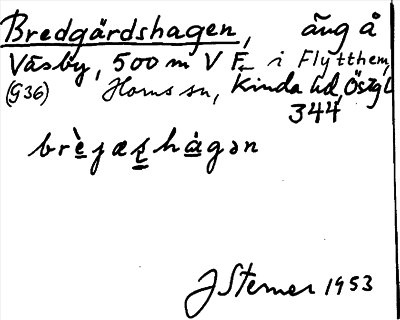 Bredgärdshagen, äng å
Väsby, 500 m V F i Flytthem,
(G36) Horns sn, Kinda hd, Östgl
344
brèjæṣhágən
J Sterner 1953